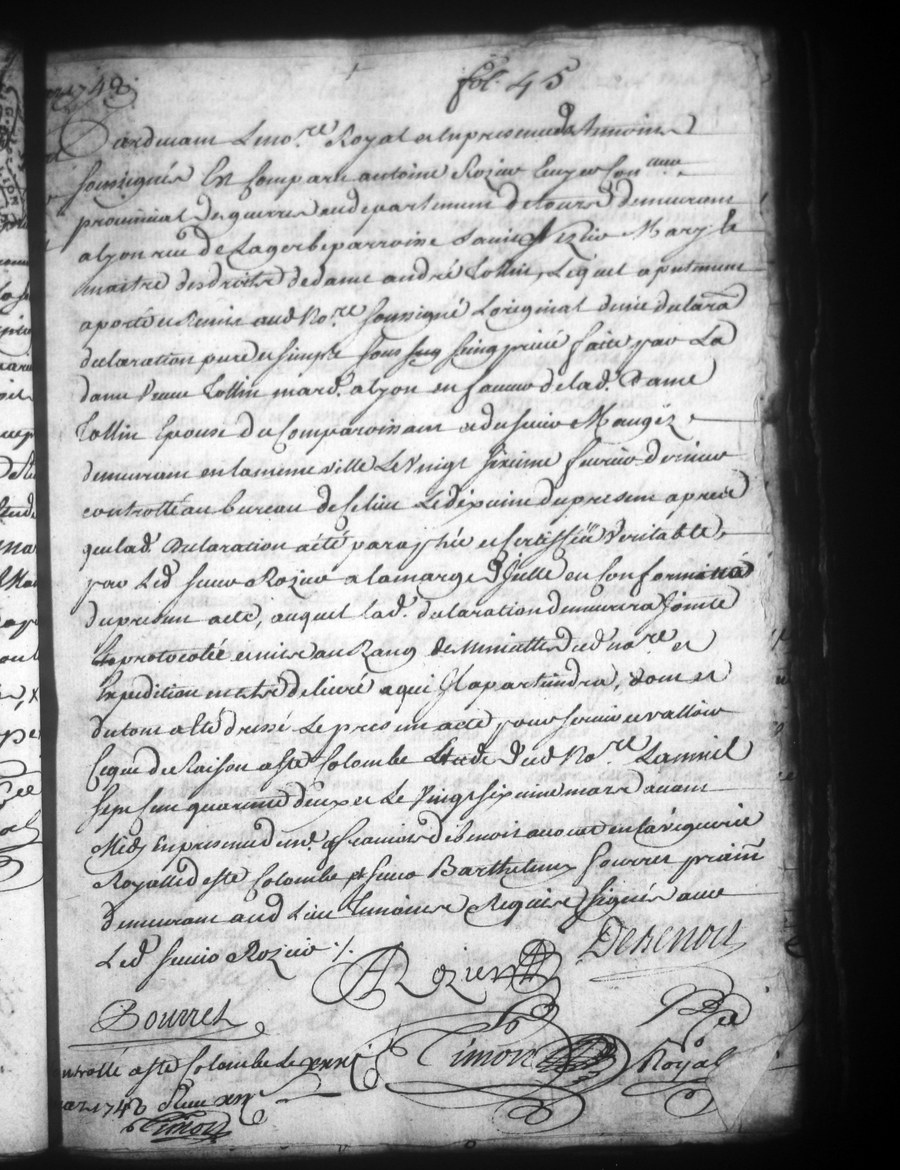 fol. 45
Pardevant Le no.re Royal et En presence des temoins
soussignés Est Comparu antoine Rozier Ecuyer Con
provincial des guerres au departement de tours demeurant
a lyon rue de Lagerbe parroisse Saint Nizier Mary et
maitre des droits de dame andré Tollin, Lequel a presentement
aporté et Remis aud No.re soussigné L'original de une
declaration pure et simple sous seing privé faite par La
dame veuve Tollin mard. a lyon en faveur de lad. Dame
Tollin Epouse du Comparoissant et du sieur Maugéz
demeurant en la meme ville Le vingt sixieme fevrier dernier
controllé au bureau de Le dixieme du present apres
que lad. Declaration a été paraphée et certiffiée veritable
par Led sieur Rozier a la marge d'Jcelle en Conformité
du present acte, auquel lad. declaration demeurera Jointe
protocolée et mise au Rang des minuttes dud no.re et
Expedition en etre delivré a qui Jl apartiendra, dont et
du tout a été dressé Le present acte pour servir et valloir
Ce que de Raison a ste Colombe Etude dud No.re Lan mil
sept Cent quarante deux et Le vingt sixieme mars avant
Midy En presence de avocat en la viguerie
Royalle de ste Colombe et sieur Barthelemy Bourret
demeurant aud Lieu temoins Requis signés avec
Led sieur Rozier ./.
A Rozier
Bourret
Timon
Royal
controllé a ste Colombe Le
1742
Timon